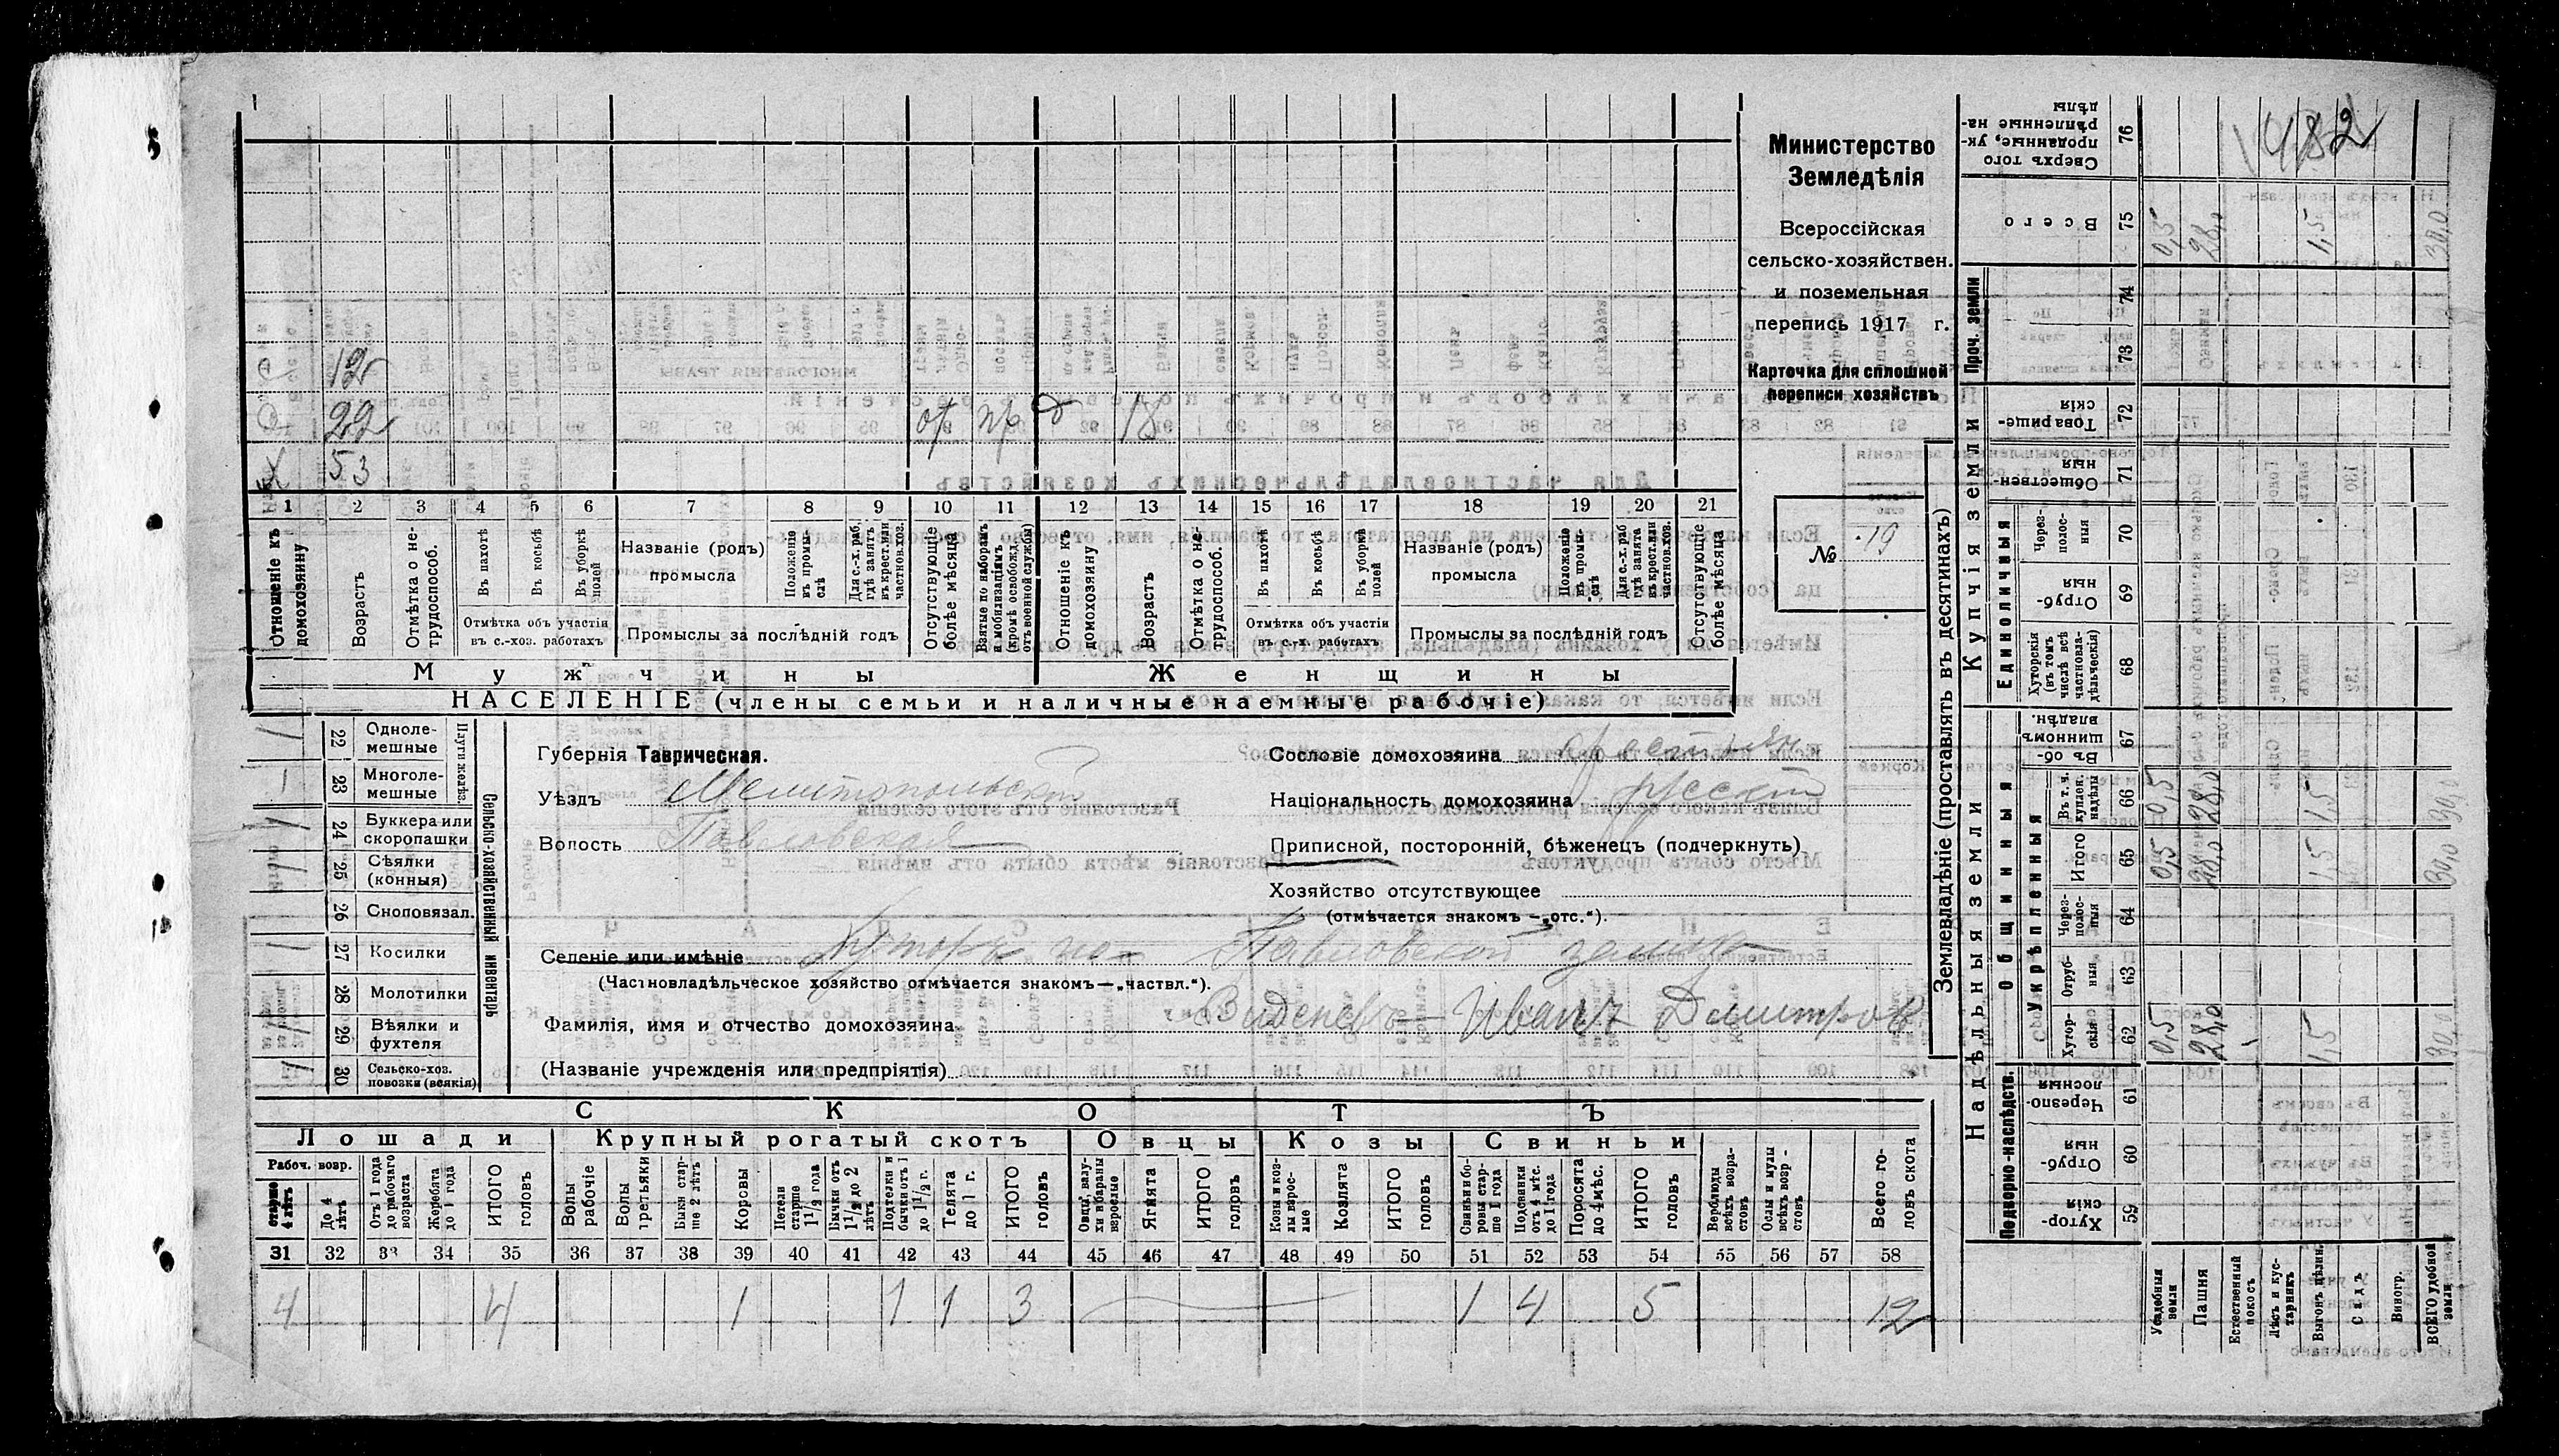 Министерство
Земледѣлія
Всероссійская
сельско-хозяйствен.
и поземельная
перепись 1917 г.
Карточка для сплошной
переписи хозяйствъ
№ 19
12
22 от пр 18
53
1 2 3 4 5 6 7 8 9 10 11 12 13 14 15 16 17 18 19 20 21
Отношеніе къ домохозяину
Возрастъ
Отмѣтка о не-трудоспособ.
Въ пахотѣ
Въ косьбѣ
Въ уборкѣ полей
Отмѣтка объ участіи въ с.-хоз. работахъ
Названіе (родъ) промысла
Положеніе въ промы-слѣ
Для с.-х. раб. гдѣ занятъ въ крест. или частнов. хоз.
Промыслы за послѣдній годъ
Отсутствующіе болѣе мѣсяца
Взятые по наборамъ и мобилизаціямъ (кромѣ освобожд. отъ военной службы)
Отношеніе къ домохозяину
Возрастъ
Отмѣтка о не-трудоспособ.
Въ пахотѣ
Въ косьбѣ
Въ уборкѣ полей
Отмѣтка объ участіи въ с.-х. работахъ
Названіе (родъ) промысла
Положеніе въ промы-слѣ
Для с.-х. раб. гдѣ занята въ крест. или частнов. хоз.
Промыслы за послѣдній годъ
Отсутствующіе болѣе мѣсяца
Мужчины Женщины
НАСЕЛЕНІЕ (члены семьи и наличные наемные рабочіе)
Сельско-хозяйственный инвентарь
Плуги желѣз.
22 Одноле-мешные 1
23 Многоле-мешные 1
24 Буккера или скоропашки 1
25 Сѣялки (конныя) 1
26 Сноповязал.
27 Косилки 1
28 Молотилки
29 Вѣялки и фухтеля 1
30 Сельско-хоз. повозки (всякія) 1
Губернія Таврическая.
Уѣздъ Мелитопольскій
Волость Павловская
Сословіе домохозяина крестьян
Національность домохозяина русскій
Приписной, посторонній, бѣженец (подчеркнуть)
Хозяйство отсутствующее
(отмѣчается знакомъ —„отс.“).
Селеніе или имѣніе Хуторъ на Павловской землѣ
(Частновладѣльческое хозяйство отмѣчается знакомъ—„частвл.“).
Фамилія, имя и отчество домохозяина Виденевъ Иванъ Дмитров
(Названіе учрежденія или предпріятія)
СКОТЪ
Лошади Крупный рогатый скотъ Овцы Козы Свиньи
Рабоч. возр.
старше 4 лѣтъ
До 4 лѣтъ
Отъ 1 года до рабочаго возраста
Жеребята до 1 года
ИТОГО головъ
Волы рабочіе
Волы третьяки
Быки стар-ше 2 лѣтъ
Коровы
Нетели старше 1 1/2 года
Бычки отъ 1 1/2 до 2 лѣтъ
Подтелки и бычки отъ 1 до 1 1/2 г.
Телята до 1 г.
ИТОГО головъ
Овцы, валу-хи и бараны взрослые
Ягнята
ИТОГО головъ
Козы и коз-лы взрос-лые
Козлята
ИТОГО головъ
Свиньи и бо-ровы стар-ше 1 года
Подсвинки отъ 4 мѣс. до 1 года
Поросята до 4 мѣс.
ИТОГО головъ
Верблюды всѣхъ возра-стовъ
Ослы и мулы всѣхъ возр-стовъ
Всего го-ловъ скота
31 32 33 34 35 36 37 38 39 40 41 42 43 44 45 46 47 48 49 50 51 52 53 54 55 56 57 58
4 4 1 1 1 3 1 4 5 12
Землевладѣніе (проставлять въ десятинахъ)
Надѣльныя земли Купчія земли Проч. земли
Подворно-наслѣдств. Общинныя Единоличныя
Укрѣпленныя
Сверхъ того проданные, ук-рѣпленные на-дѣлы 76
Всего 75
74
73
Товарище-скія 72
Обществен-ныя 71
Через-полос-ныя 70
Отруб-ныя 69
Хуторскія (въ томъ числѣ всѣ частновла-дѣльческія) 68
Въ об-щинномъ владѣн. 67
Въ т. ч. куплен. надѣлы 66
Итого 65
Через-полос-ныя 64
Отруб-ныя 63
Хутор-скія 62
Черезпо-лосныя 61
Отруб-ныя 60
Хутор-скія 59
Усадебныя земли
Пашня
Естественный покосъ
Лѣсъ и кус-тарникъ
Выгонъ цѣлин.
Садъ
Виногр.
ВСЕГО удобной земли
482
0,5 28,0 1,5 30,0
0,5 28,0 1,5 30,0
0,5 28,0 1,5 30,0
0,5 28,0 1,5 30,0